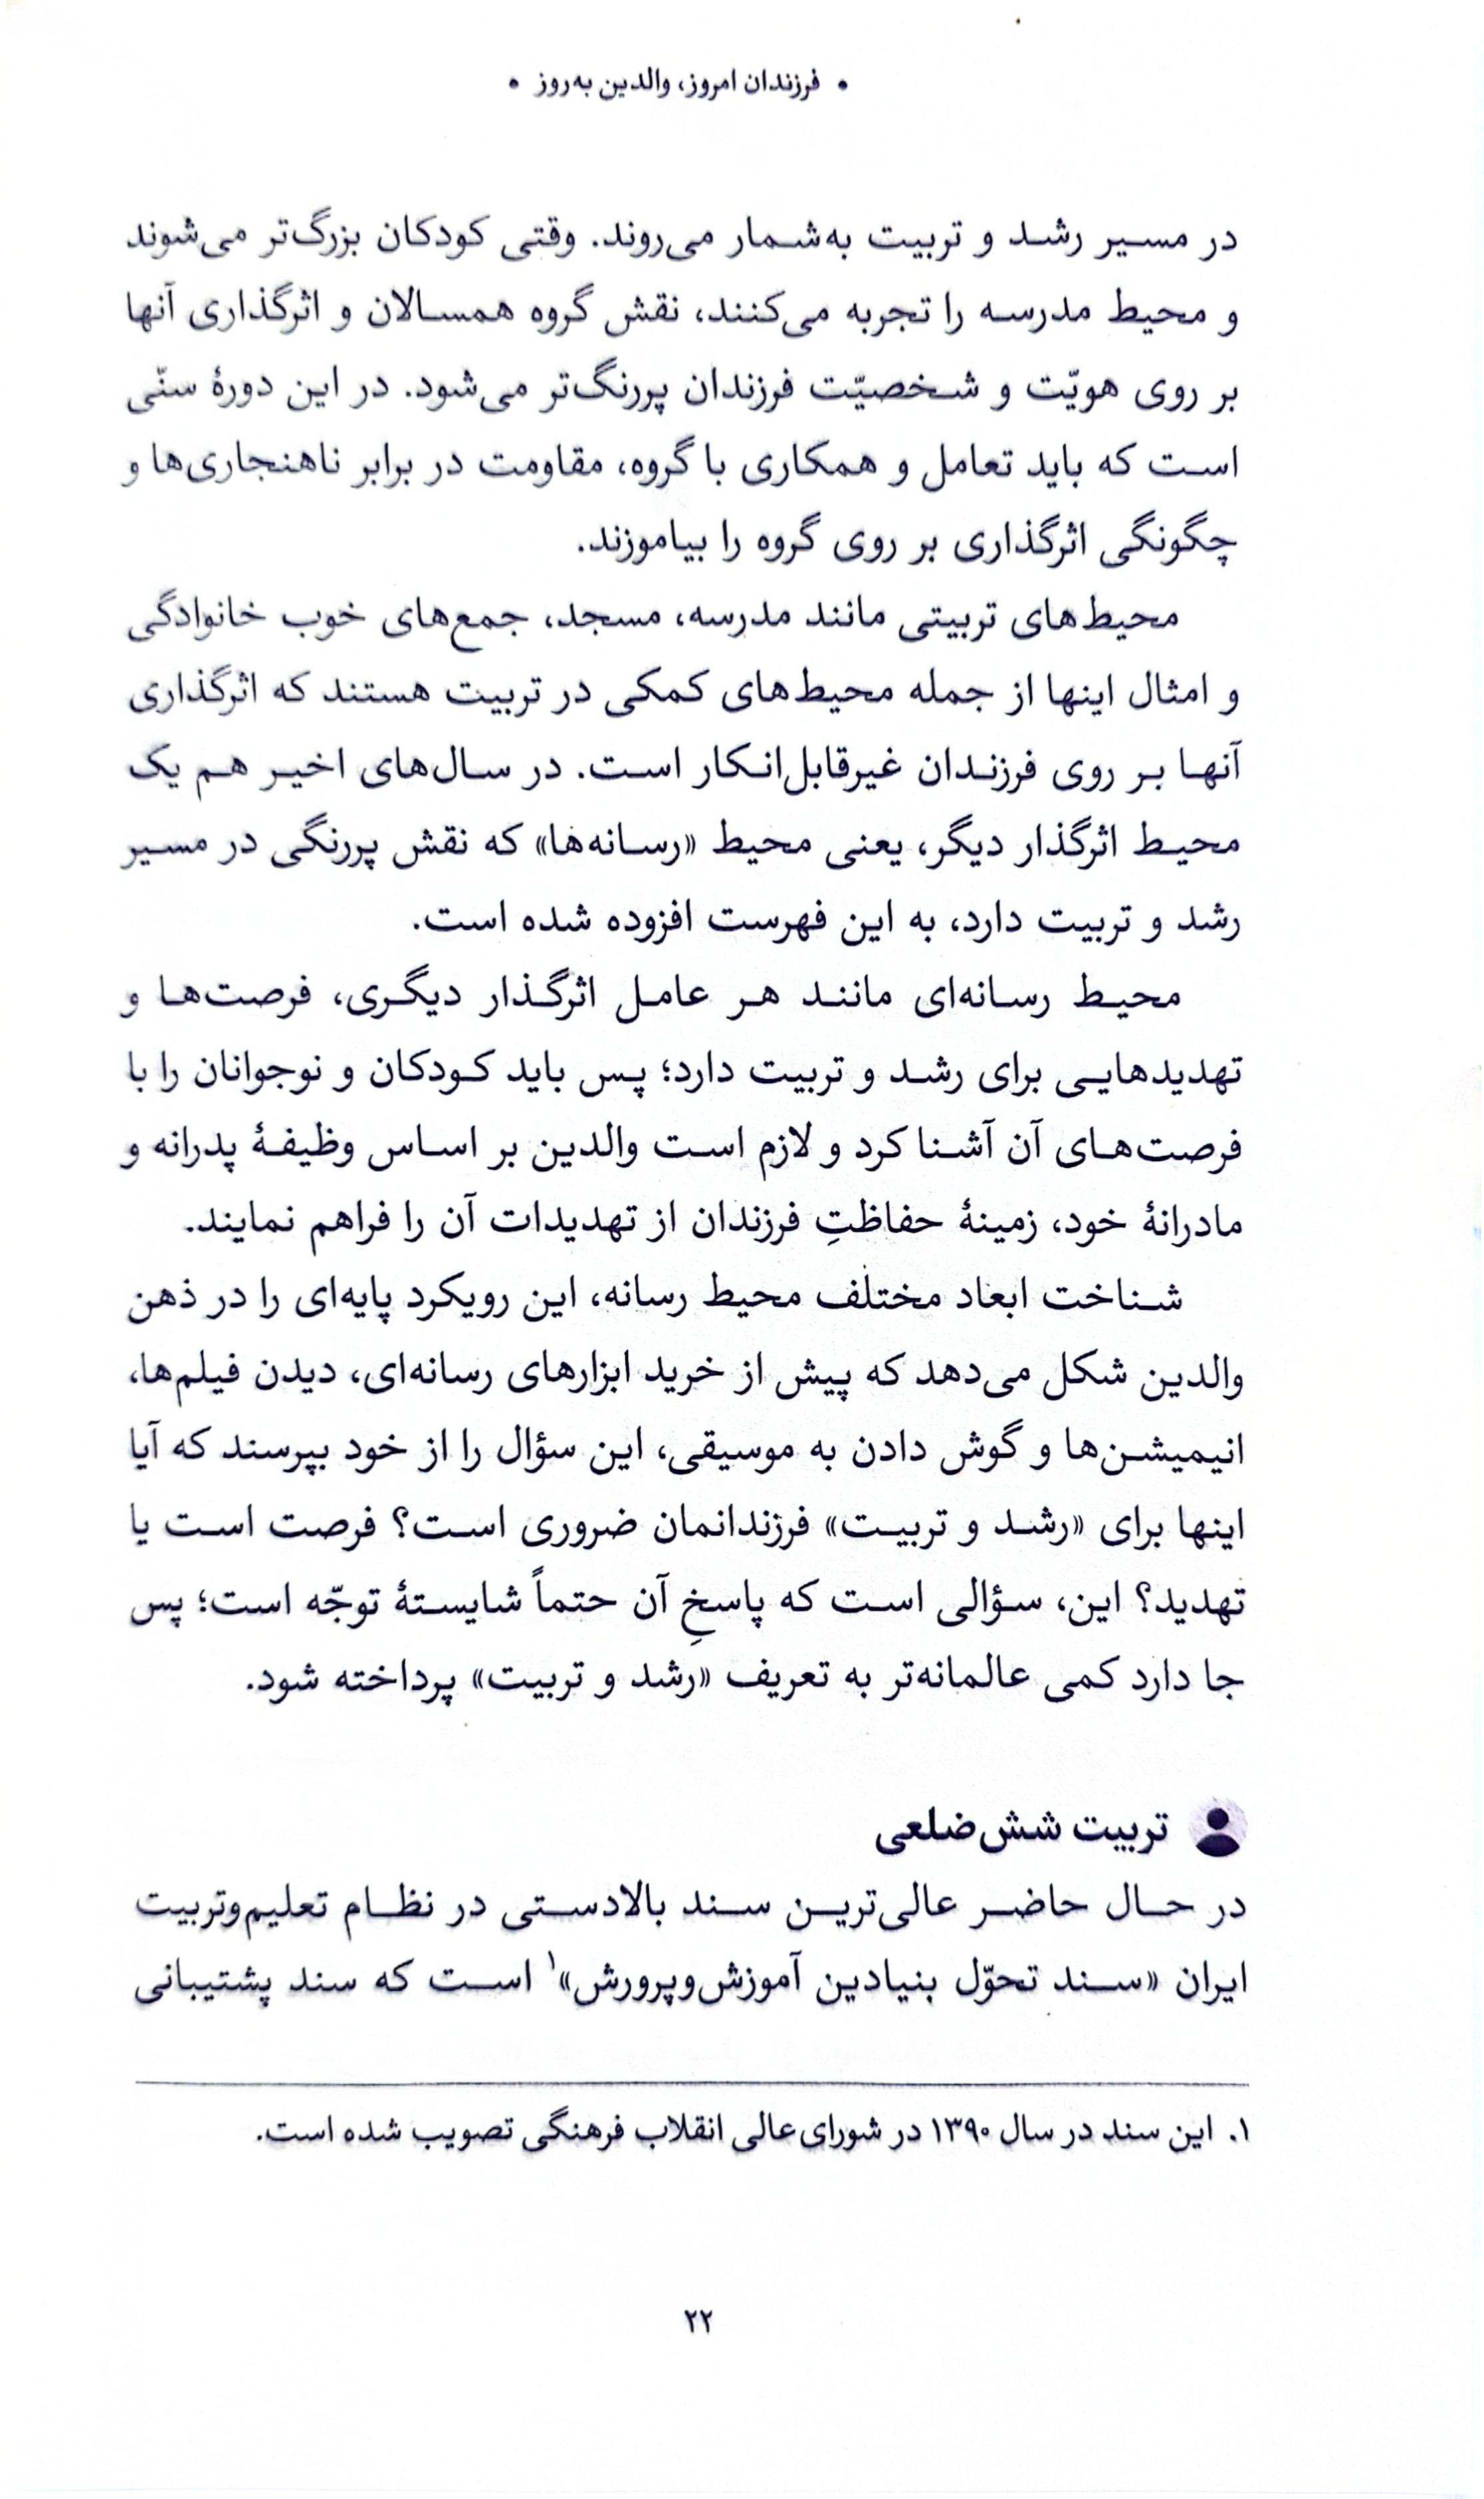 • فرزندان امروز، والدین به‌روز •
در مسیر رشد و تربیت به‌شمار می‌روند. وقتی کودکان بزرگ‌تر می‌شوند
و محیط مدرسه را تجربه می‌کنند، نقش گروه همسالان و اثرگذاری آنها
بر روی هویّت و شخصیّت فرزندان پررنگ‌تر می‌شود. در این دورهٔ سنّی
است که باید تعامل و همکاری با گروه، مقاومت در برابر ناهنجاری‌ها و
چگونگی اثرگذاری بر روی گروه را بیاموزند.
محیط‌های تربیتی مانند مدرسه، مسجد، جمع‌های خوب خانوادگی
و امثال اینها از جمله محیط‌های کمکی در تربیت هستند که اثرگذاری
آنها بر روی فرزندان غیرقابل‌انکار است. در سال‌های اخیر هم یک
محیط اثرگذار دیگر، یعنی محیط «رسانه‌ها» که نقش پررنگی در مسیر
رشد و تربیت دارد، به این فهرست افزوده شده است.
محیط رسانه‌ای مانند هر عامل اثرگذار دیگری، فرصت‌ها و
تهدیدهایی برای رشد و تربیت دارد؛ پس باید کودکان و نوجوانان را با
فرصت‌های آن آشنا کرد و لازم است والدین بر اساس وظیفهٔ پدرانه و
مادرانهٔ خود، زمینهٔ حفاظتِ فرزندان از تهدیدات آن را فراهم نمایند.
شناخت ابعاد مختلف محیط رسانه، این رویکرد پایه‌ای را در ذهن
والدین شکل می‌دهد که پیش از خرید ابزارهای رسانه‌ای، دیدن فیلم‌ها،
انیمیشن‌ها و گوش دادن به موسیقی، این سؤال را از خود بپرسند که آیا
اینها برای «رشد و تربیت» فرزندانمان ضروری است؟ فرصت است یا
تهدید؟ این، سؤالی است که پاسخِ آن حتماً شایستهٔ توجّه است؛ پس
جا دارد کمی عالمانه‌تر به تعریف «رشد و تربیت» پرداخته شود.
تربیت شش‌ضلعی
در حال حاضر عالی‌ترین سند بالادستی در نظام تعلیم‌وتربیت
ایران «سند تحوّل بنیادین آموزش‌وپرورش»۱ است که سند پشتیبانی
۱. این سند در سال ۱۳۹۰ در شورای‌عالی انقلاب فرهنگی تصویب شده است.
۲۲